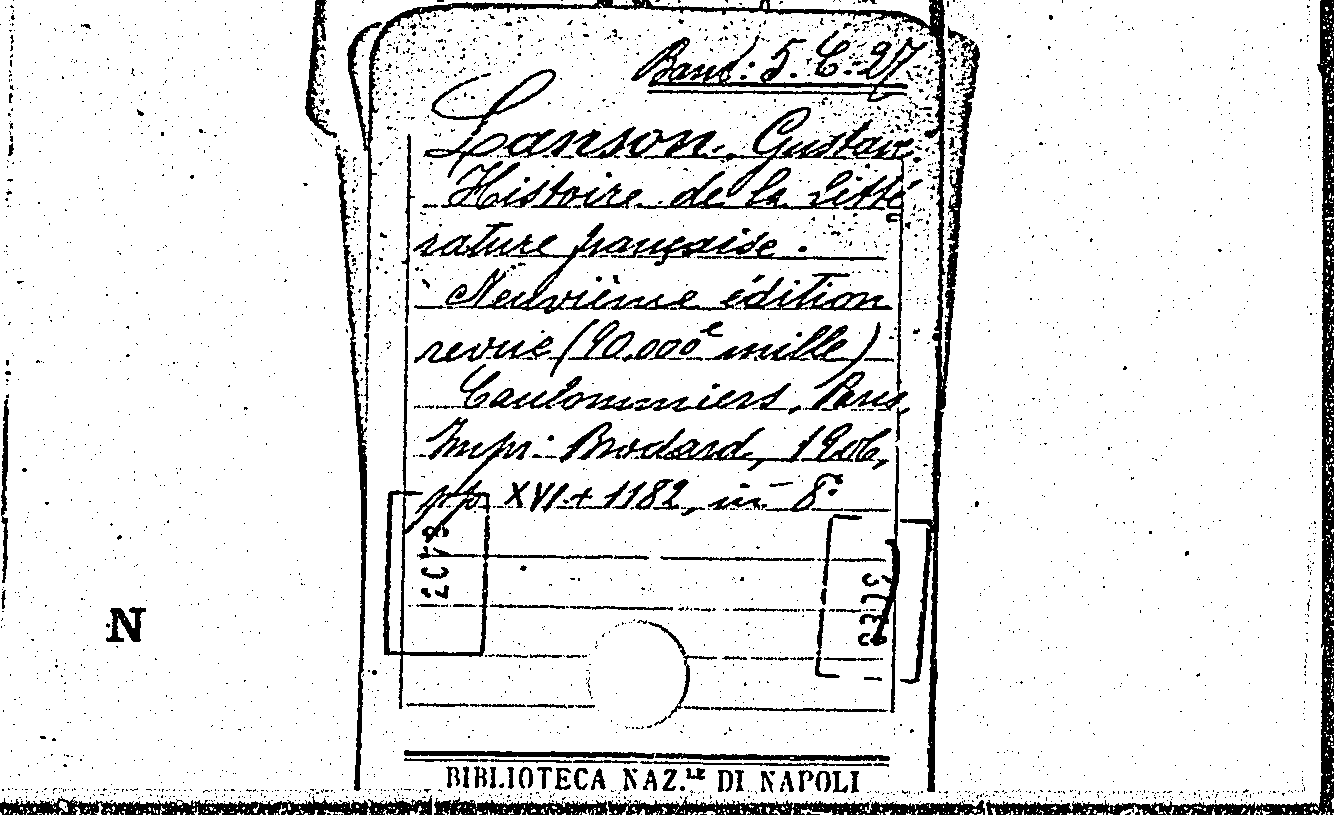 Band: 5. C. 27
Lanson, Gustave.
Histoire de la litté
rature française.
Neuvième édition
revue (90.000e mille)
Coulommiers, Paris,
Impr: Brodard, 1906,
pp XVI + 1182, in-8°
N
BIBLIOTECA NAZ.LE DI NAPOLI